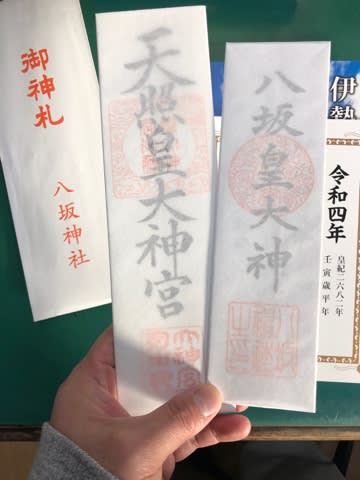 御神札
八坂神社
天照皇大神宮
八坂皇大神
伊
令和四年
皇紀二六八二年
壬寅歳平年